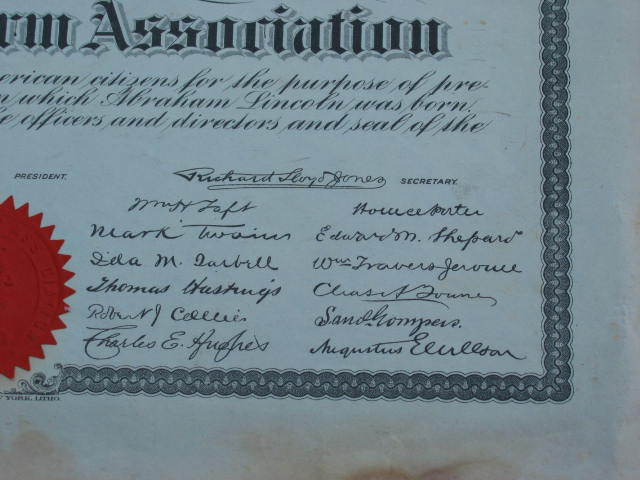 rm Association
erican citizens for the purpose of pre-
n which Abraham Lincoln was born.
e officers and directors and seal of the
PRESIDENT. Richard Lloyd Jones SECRETARY.
Wm H Taft Horace Porter
Mark Twain Edward M. Shepard
Ida M. Tarbell Wm Travers Jerome
Thomas Hastings Chas A Towne
Robert J Collier Saml Gompers.
Charles E. Hughes Augustus E. Willson
YORK. LITHO.